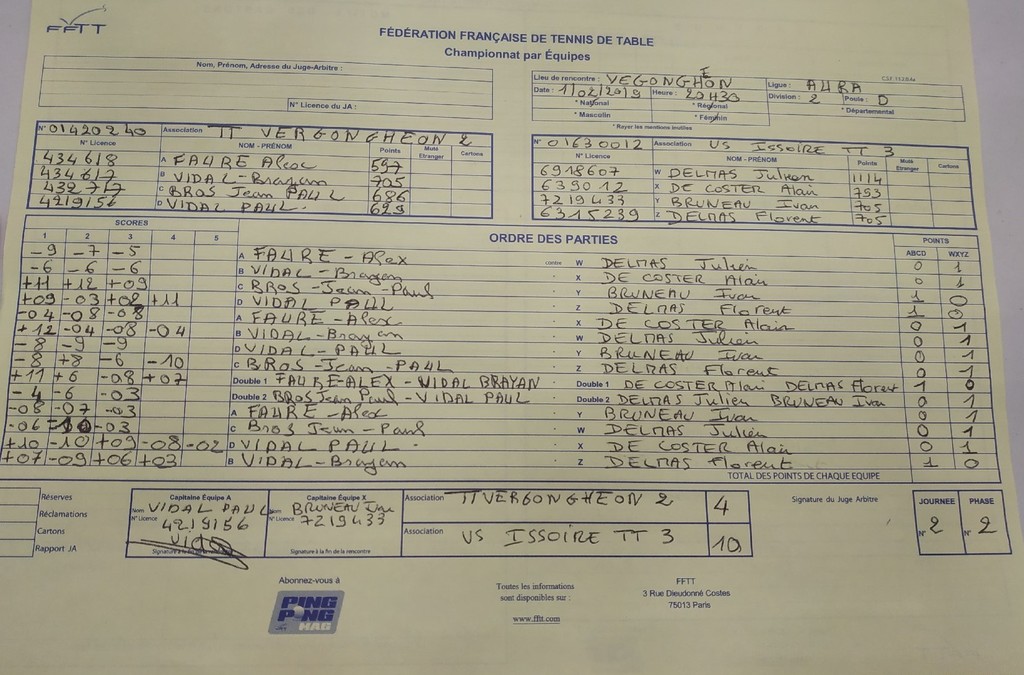 FFTT
FÉDÉRATION FRANÇAISE DE TENNIS DE TABLE
Championnat par Équipes
Nom, Prénom, Adresse du Juge-Arbitre :
N° Licence du JA :
Lieu de rencontre : VEGONGHEON Ligue : AURA
Date : 1/02/2019 Heure : 20H30 Division : 2 Poule : D
* National * Régional * Départemental
* Masculin * Féminin
* Rayer les mentions inutiles
N° 01420240 Association TT VERGONGHEON 2
N° Licence NOM - PRÉNOM Points Muté Etranger Cartons
434618 A FAURE Alex 597
434617 B VIDAL-Brayan 705
432717 C BROS Jean PAUL 686
4219156 D VIDAL PAUL 629
N° 01630012 Association US ISSOIRE TT 3
N° Licence NOM - PRÉNOM Points Muté Etranger Cartons
6918607 W DELMAS Julien 1114
639012 X DE COSTER Alain 753
7219433 Y BRUNEAU Ivan 705
6315239 Z DELMAS Florent 705
SCORES ORDRE DES PARTIES POINTS
1 2 3 4 5 ABCD WXYZ
-9 -7 -5 A FAURE - Alex contre W DELMAS Julien 0 1
-6 -6 -6 B VIDAL-Brayan X DE COSTER Alain 0 1
+11 +12 +09 C BROS-Jean-Paul Y BRUNEAU Ivan 1 0
+09 -03 +08 +11 D VIDAL PAUL Z DELMAS Florent 1 0
-04 -08 -08 A FAURE-Alex X DE COSTER Alain 0 1
+12 -04 -08 -04 B VIDAL-Brayan W DELMAS Julien 0 1
-8 -9 -9 D VIDAL-PAUL Y BRUNEAU Ivan 0 1
-8 +8 -6 -10 C BROS-Jean-PAUL Z DELMAS Florent 0 1
+11 +6 -08 +07 Double 1 FAURE-ALEX - VIDAL BRAYAN Double 1 DE COSTER Alain DELMAS Florent 1 0
-4 -6 -03 Double 2 BROS Jean Paul - VIDAL PAUL Double 2 DELMAS Julien BRUNEAU Ivan 0 1
-08 -07 -03 A FAURE-Alex Y BRUNEAU Ivan 0 1
-06 -10 -03 C BROS Jean-Paul W DELMAS Julien 0 1
+10 -10 +09 -08 -02 D VIDAL PAUL X DE COSTER Alain 0 1
+07 -09 +06 +03 B VIDAL-Brayan Z DELMAS Florent 1 0
TOTAL DES POINTS DE CHAQUE EQUIPE
Réserves
Réclamations
Cartons
Rapport JA
Capitaine Équipe A
Nom VIDAL PAUL
N° Licence 4219156
Vidal
Signature à la fin de la rencontre
Capitaine Équipe X
Nom BRUNEAU Ivan
N° Licence 7219433
Signature à la fin de la rencontre
Association TT VERGONGHEON 2 4
Association US ISSOIRE TT 3 10
Signature du Juge Arbitre
JOURNEE PHASE
N° 2 N° 2
Abonnez-vous à
PING PONG MAG
Toutes les informations
sont disponibles sur :
www.fftt.com
FFTT
3 Rue Dieudonné Costes
75013 Paris